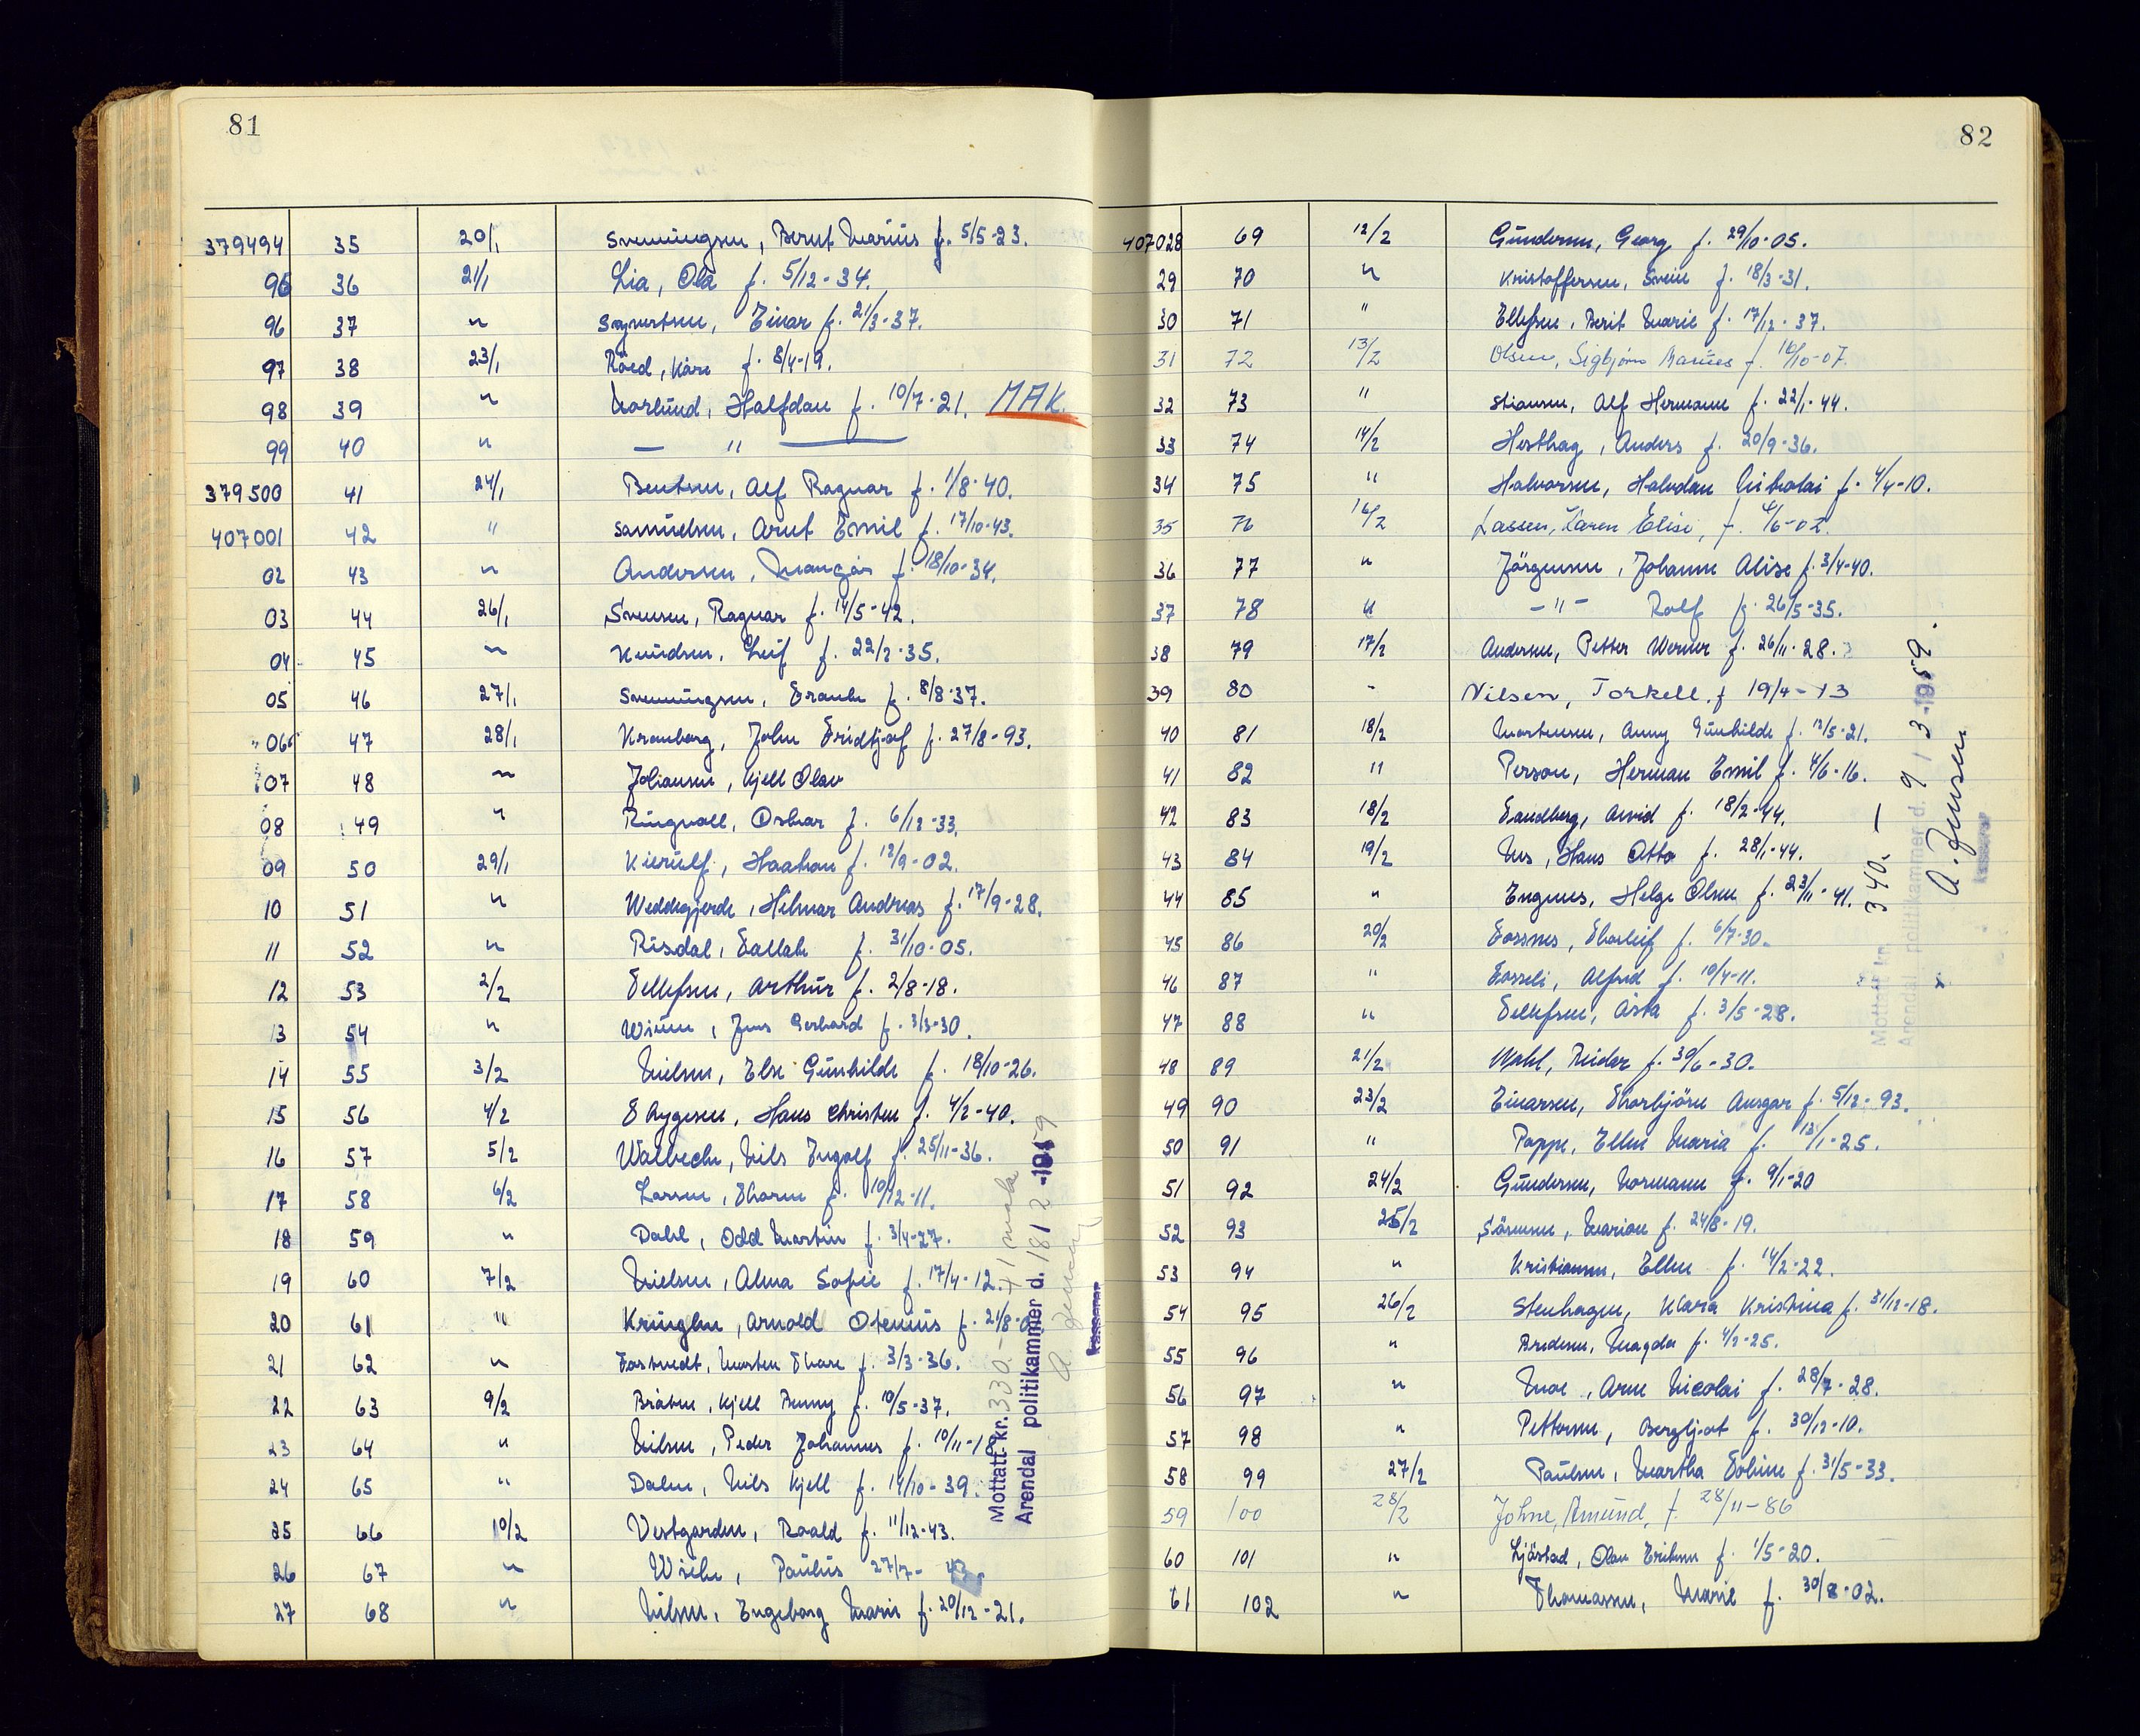 81
379494 35 20/1 Svenningsen, Bernt Marius f. 5/5-23.
96 36 21/1 Lia, Ola f. 5/12-34.
96 37 " Syvertsen, Einar f. 21/3-37.
97 38 23/1 Röed, Kåre f. 8/4-19.
98 39 " Norlund, Halfdan f. 10/7-21. MAK.
99 40 " — " —
379500 41 24/1 Bentsen, Alf Ragnar f. 1/8-40.
407001 42 " Samuelsen, Arnt Emil f. 17/10-43.
02 43 " Andersen, f. 18/10-34.
03 44 26/1 Svensen, Ragnar f. 14/5-42.
04 45 " Knudsen, Leif f. 22/2-35.
05 46 27/1 Svenningsen, Frank f. 8/8-37.
06 47 28/1 Kranberg, John Fridtjof f. 27/8-93.
07 48 " Johansen, Kjell Olav
08 49 " Ringvoll, Oskar f. 6/12-33.
09 50 29/1 Kierulf, Haakon f. 12/9-02.
10 51 " Weddegjerde, Hilmar Andreas f. 17/9-28.
11 52 " Risdal, Tallak f. 31/10-05.
12 53 2/2 Tellefsen, Arthur f. 2/8-18.
13 54 " Jens Gerhard f. 3/3-30.
14 55 3/2 Nielsen, Else Gunhilde f. 18/10-26.
15 56 4/2 Thygesen, Hans Christen f. 4/2-40.
16 57 5/2 Nils Ingolf f. 25/11-36.
17 58 6/2 Larsen, f. 10/12-11.
18 59 " Dahl, Odd Martin f. 3/4-27.
19 60 7/2 Nielsen, Alma Sofie f. 17/4-12.
20 61 " Kringlen, Arnold Otenius f. 21/8-0
21 62 " Morten Thore f. 3/3-36.
22 63 9/2 Bråten, Kjell Benny f. 10/5-37.
23 64 " Nilsen, Peder Johannes f. 10/11-18
24 65 " Dalen, Nils Kjell f. 14/10-39.
25 66 10/2 Vestgarden, Roald f. 11/12-43.
26 67 " Paulus 27/7- 43.
27 68 " Nilsen, Ingeborg Marie f. 20/12-21.
Mottatt kr. 330.-
Arendal politikammer d. 18/2 -1959
A. Jensen
kasserer
82
407028 69 12/2 Gundersen, Georg f. 29/10-05.
29 70 " Kristoffersen, Svein f. 18/3-31.
30 71 " Ellefsen, Berit Marie f. 17/12-37.
31 72 13/2 Olsen, Sigbjørn Marius f. 16/10-07.
32 73 " Stiansen, Alf Hermann f. 22/1-44.
33 74 14/2 Hesthag, Anders f. 20/9-36.
34 75 " Halvorsen, Halvdan Nikolai f. 4/4-10.
35 76 16/2 Lassen, Karen Elise, f. 4/6-02.
36 77 " Jörgensen, Johanne Alise f. 3/4-40.
37 78 " - " - Rolf f. 26/5-35.
38 79 17/2 Andersen, Petter Werner f. 26/11-28.
39 80 - Nilsen, Torkell, f 19/4-13
40 81 18/2 Mortensen, Anny Gunhilde f. 12/5-21.
41 82 " Person, Herman Emil f. 4/6-16.
42 83 18/2 Sandberg, Arvid f. 18/2-44.
43 84 19/2 Nes, Hans Otto f. 28/1-44.
44 85 " Engenes, Helge Olsen f. 23/11-41.
45 86 20/2 Fossnes, Thorleif f. 6/7-30.
46 87 " Fosseli, Alfred f. 10/4-11.
47 88 " Tellefsen, Åsta f. 3/5-28.
48 89 21/2 Wahl, Reidar f. 30/6-30.
49 90 23/2 Einarsen, Thorbjörn Ansgar f. 5/12-93.
50 91 " Poppe, Ellen Maria f. 12/1-25.
51 92 24/2 Gundersen, Normann f. 9/1-20
52 93 25/2 Sörensen, Marion f. 24/8-19.
53 94 " Kristiansen, Ellen f. 14/2-22.
54 95 26/2 Stenhagen, Klara Kristina f. 31/12-18.
55 96 " Bredesen, Magda f. 4/2-25.
56 97 " Moe, Arne Nicolai f. 28/7-28.
57 98 " Pettersen, Bergljot f. 30/12-10.
58 99 27/2 Paulsen, Martha Toline f. 31/5-33.
59 100 28/2 Johne, Amund, f. 28/11-86
60 101 " Ljöstad, Olav Eriksen f. 1/5-20.
61 102 " Thomassen, Marie f. 30/8-02.
Mottatt kr. 340.-
Arendal politikammer d. 9/3-1959.
A. Jensen
kasserer